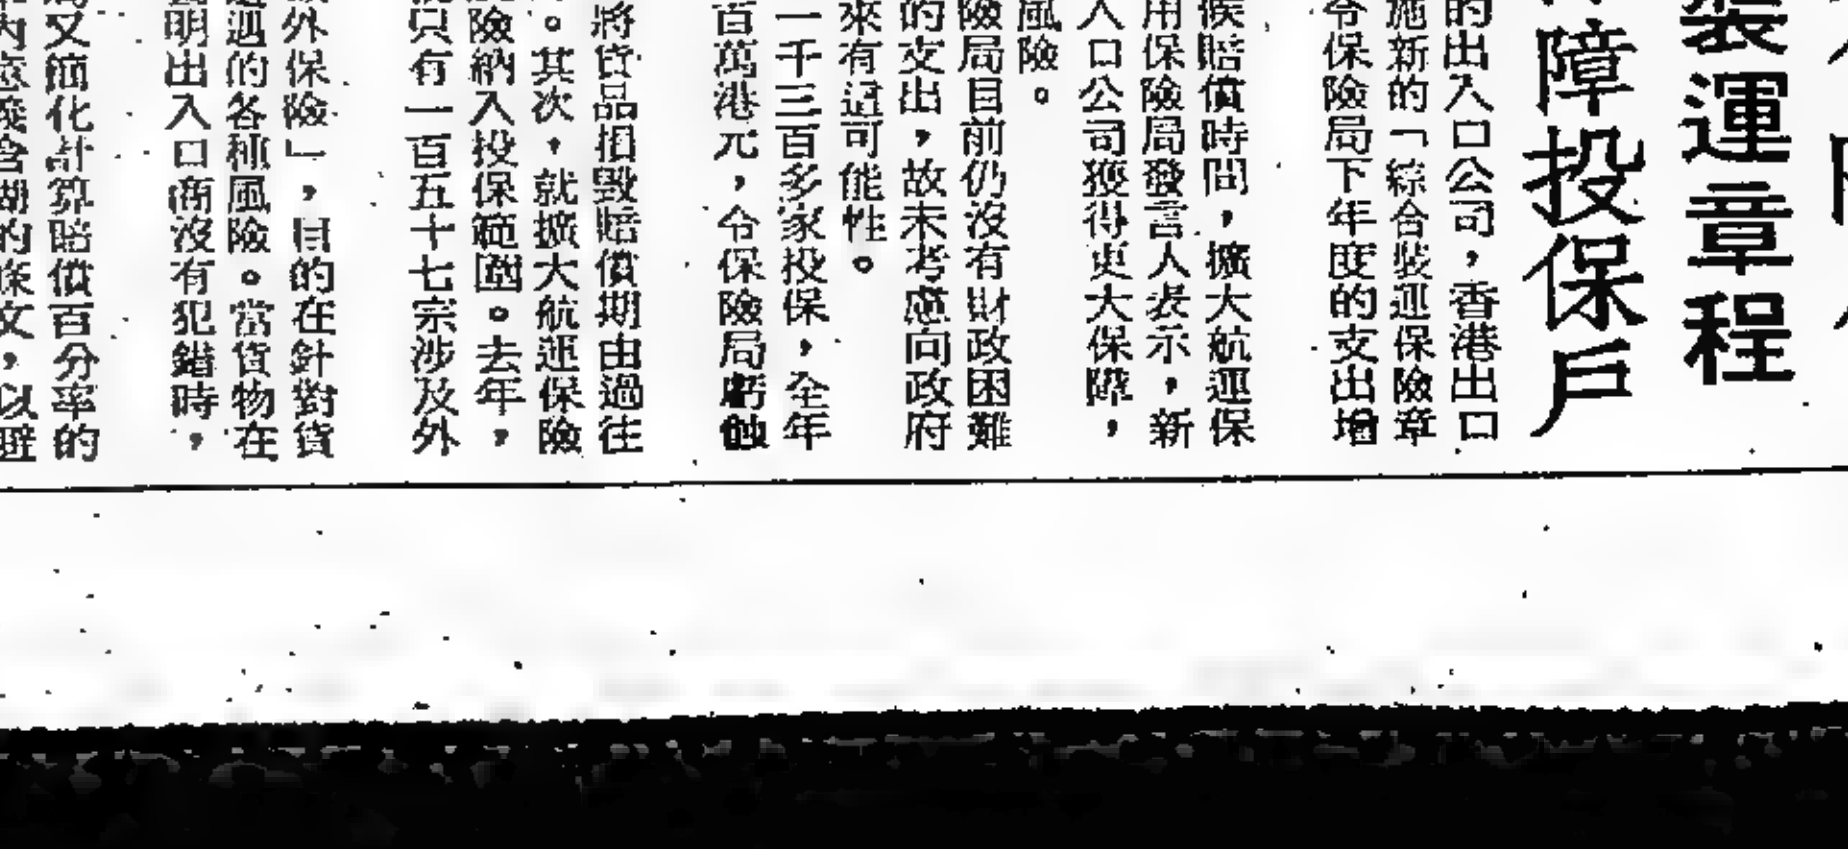 裝運章程
障投保戶
的出入口公司，香港出口
施新的「綜合裝運保險章
令保險局下年度的支出增
候賠償時間，擴大航運保
用保險局發言人表示，新
入口公司獲得更大保障，
風險。
險局目前仍沒有財政困難
的支出，故未考慮向政府
來有這可能性。
一千三百多家投保，全年
百萬港元，令保險局虧蝕
將貨品損毀賠償期由過往
。其次，就擴大航運保險
險納入投保範圍。去年，
只有一百五十七宗涉及外
外保險」，目的在針對貨
遇的各種風險。當貨物在
明出入口商沒有犯錯時，
又簡化計算賠償百分率的
內意義含糊的條文，以避